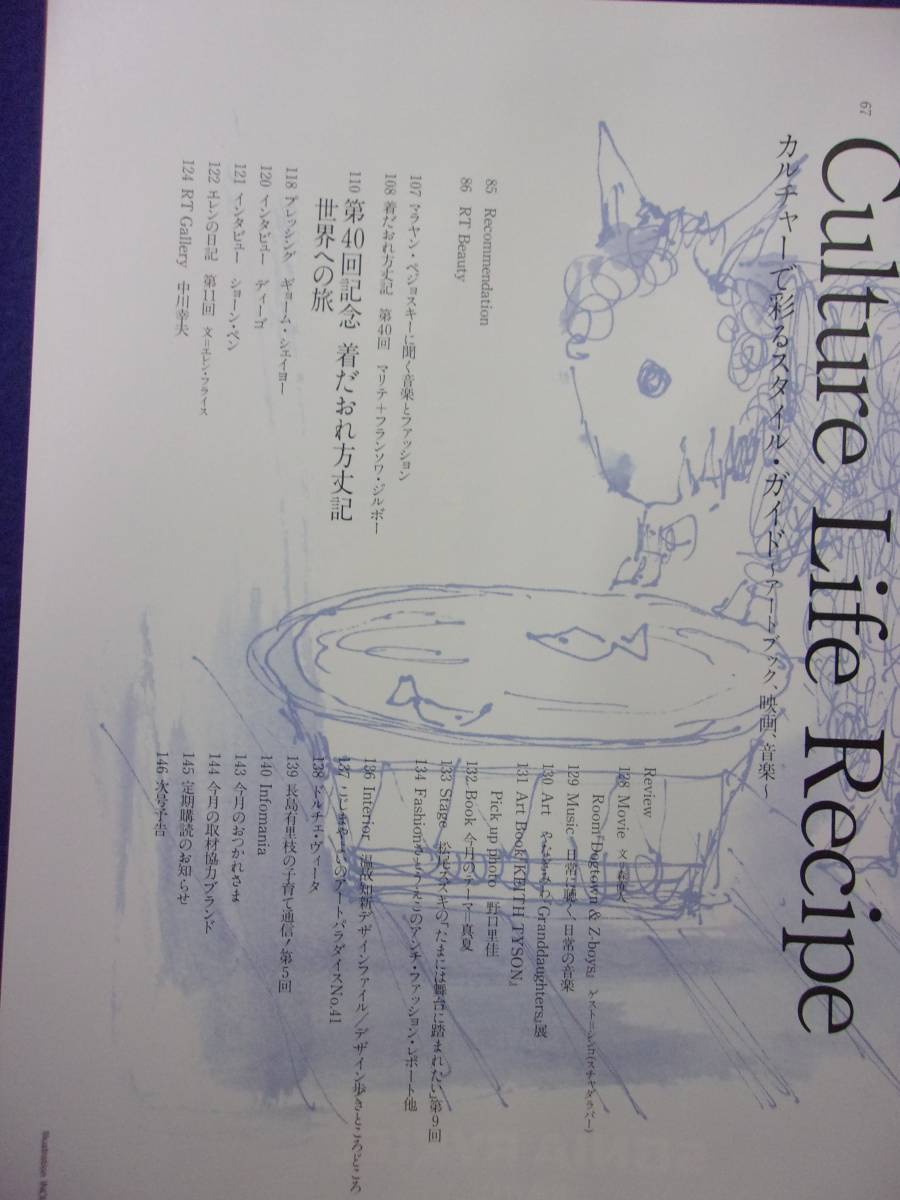 67
Culture Life Recipe
カルチャーで彩るスタイル・ガイド～アートブック、映画、音楽～
85 Recommendation
86 RT Beauty
107 マラヤン・ペジョスキーに聞く音楽とファッション
108 着だおれ方丈記 第40回 マリテ+フランソワ・ジルボー
110 第40回記念 着だおれ方丈記
世界への旅
118 ブレッシング ギョーム・シェイヨー
120 インタビュー ティーゴ
121 インタビュー ショーン・ペン
122 エレンの日記 第11回 文=エレン・フライス
124 RT Gallery 中川幸夫
Review
128 Movie 文=森直人
Room『Dogtown & Z-boys』 ゲスト=シンコ(スチャダラパー)
129 Music 日常で聴く、日常の音楽
130 Art 『Granddaughters』展
131 Art Book『KEITH TYSON』
Pick up photo 野口里佳
132 Book 今月のテーマ=真夏
133 Stage 「たまには舞台に踏まれたい」第9回
134 Fashion のアンチ・ファッション・レポート他
136 Interior 温故知新デザインファイル／デザイン歩きところどころ
137 のアートパラダイスNo.41
138 ドルチェ・ヴィータ
139 長島有里枝の子育て通信！第5回
140 Infomania
143 今月のおつかれさま
144 今月の取材協力ブランド
145 定期購読のお知らせ
146 次号予告
Illustration